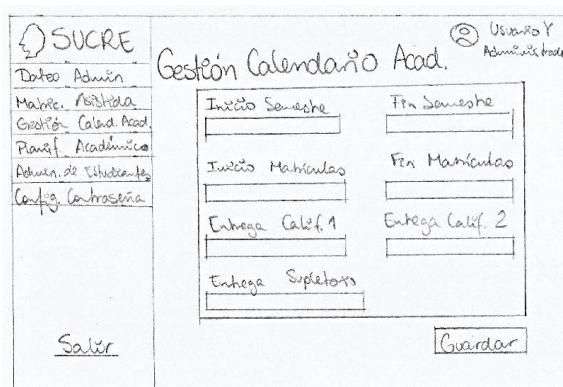 SUCRE
Datos Admin
Matric. Asistida
Gestión Calend. Acad.
Planif. Académica
Admin. de Estudiantes
Config. Contraseña
Salir
Usuario Y
Administrador
Gestión Calendario Acad.
Inicio Semestre
Fin Semestre
Inicio Matrículas
Fin Matrículas
Entrega Calif. 1
Entrega Calif. 2
Entrega Supletorio
Guardar